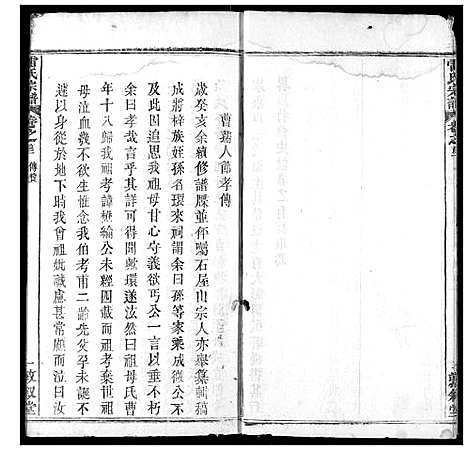 雷氏宗譜
卷之三
傳贊
一
敦叙堂
曹孺人節孝傳
歲癸亥余續修譜牒並伻囑石屋山宗人亦舉纂輯稿
成將梓族姪孫名環來祠謂余曰孫等家乘成微公不
及此因追思我祖母甘心守義欲丐公一言以垂不朽
余曰孝哉言乎其詳可得聞歟環遂泫然曰祖母氏曹
年十八歸我祖考諱 公未經團載而祖考棄世祖
母泣血幾不欲生惟念我伯考甫二齡先父孕未誕不
遂以身從於地下時我曾祖妣戚慮甚常顧而泣曰汝